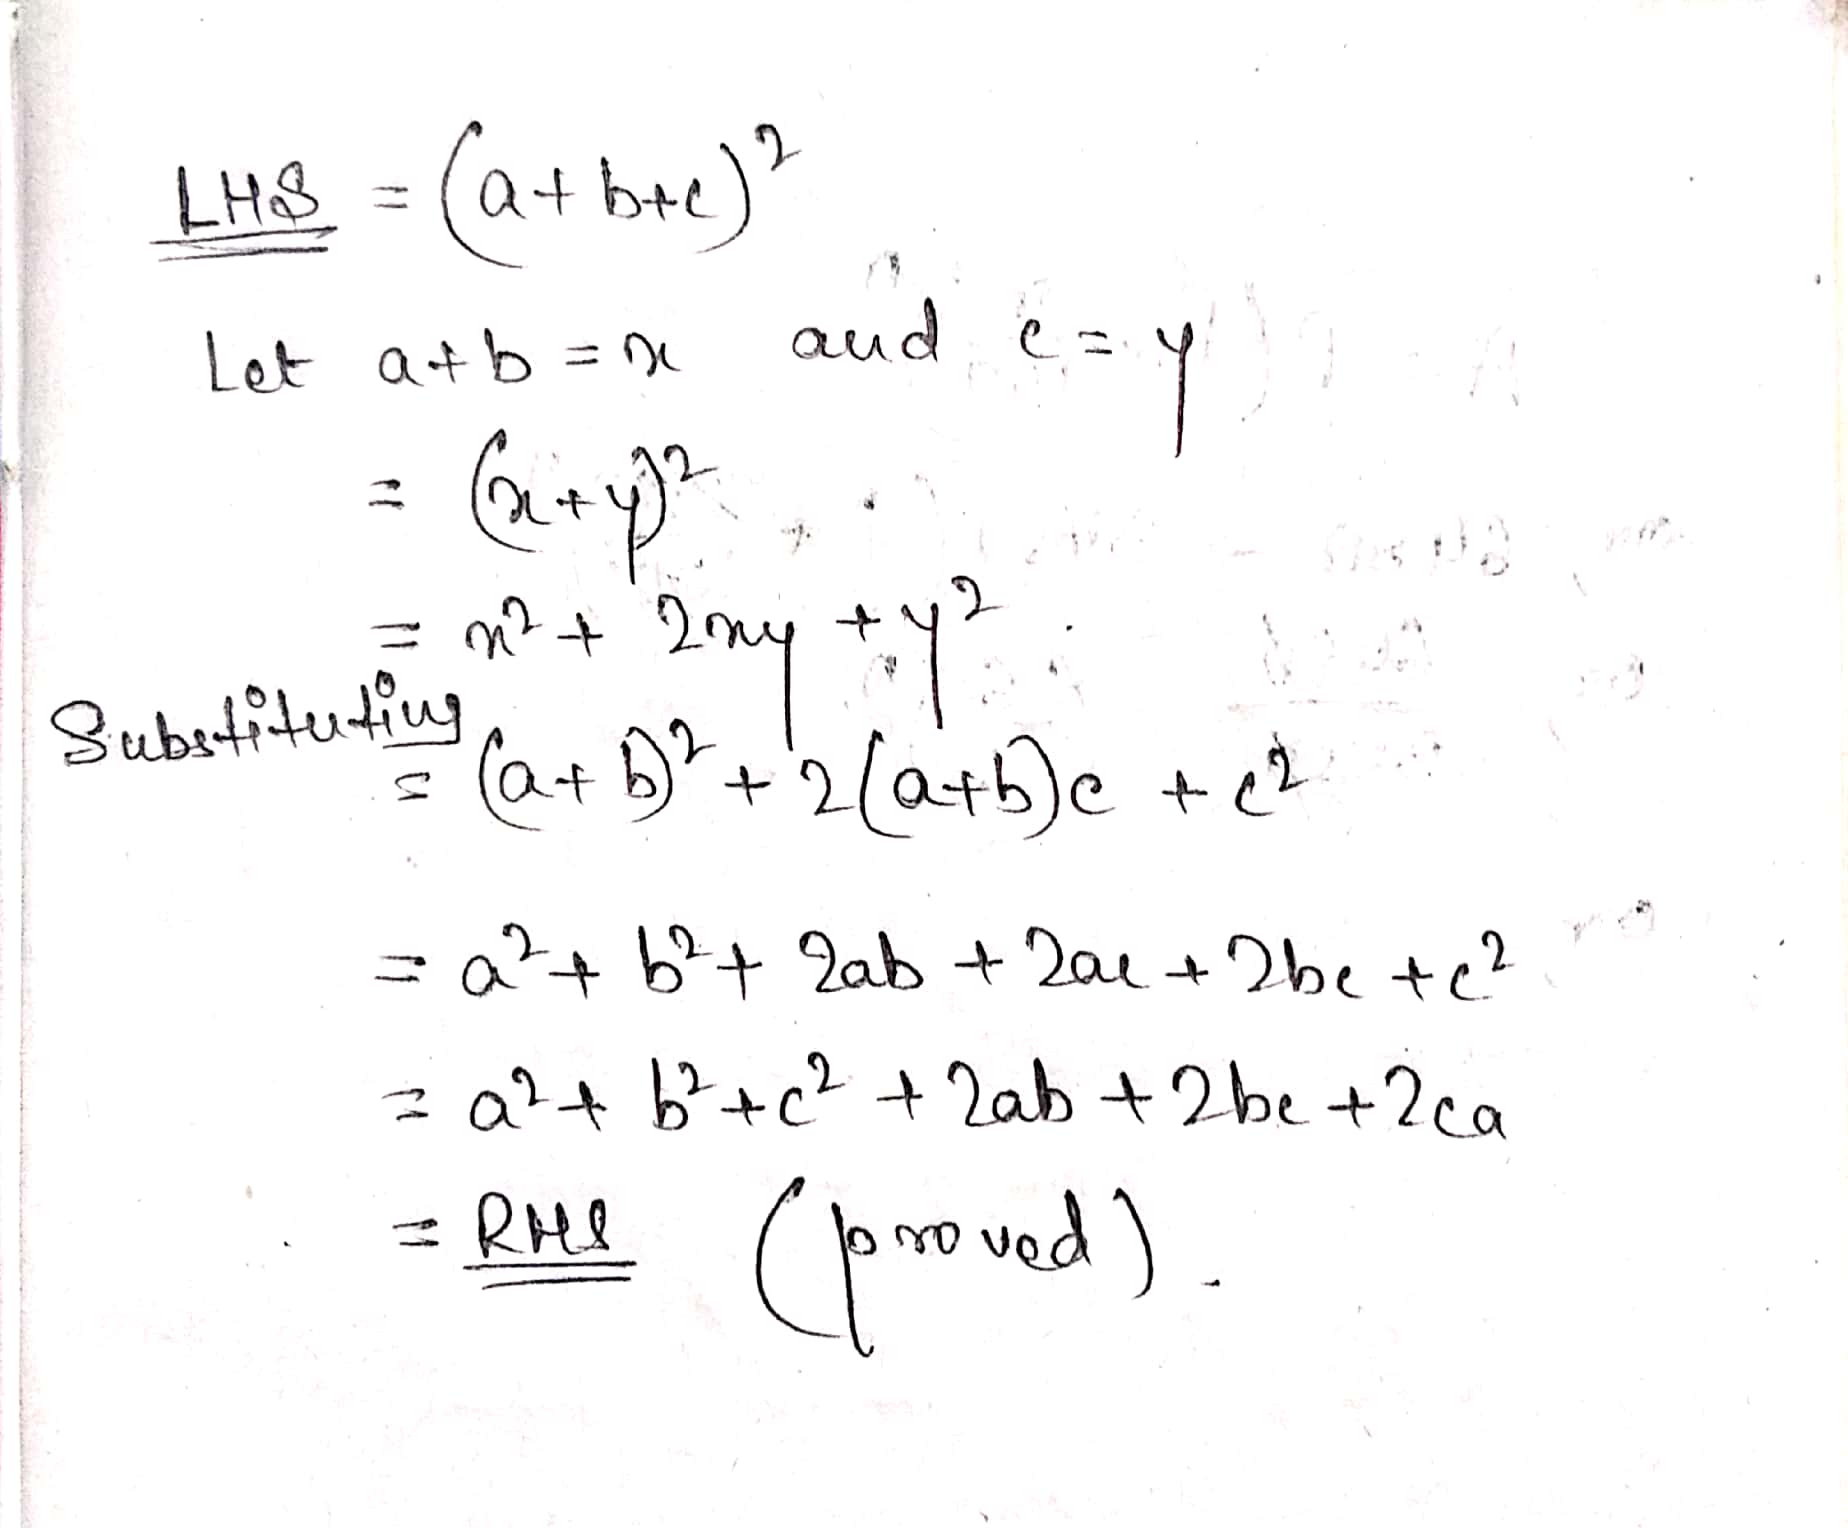 LHS = (a+b+c)²
Let a+b = x and c = y
= (x+y)²
= x² + 2xy + y²
Substituting
= (a+b)² + 2(a+b)c + c²
= a² + b² + 2ab + 2ac + 2bc + c²
= a² + b² + c² + 2ab + 2bc + 2ca
= RHS (proved).